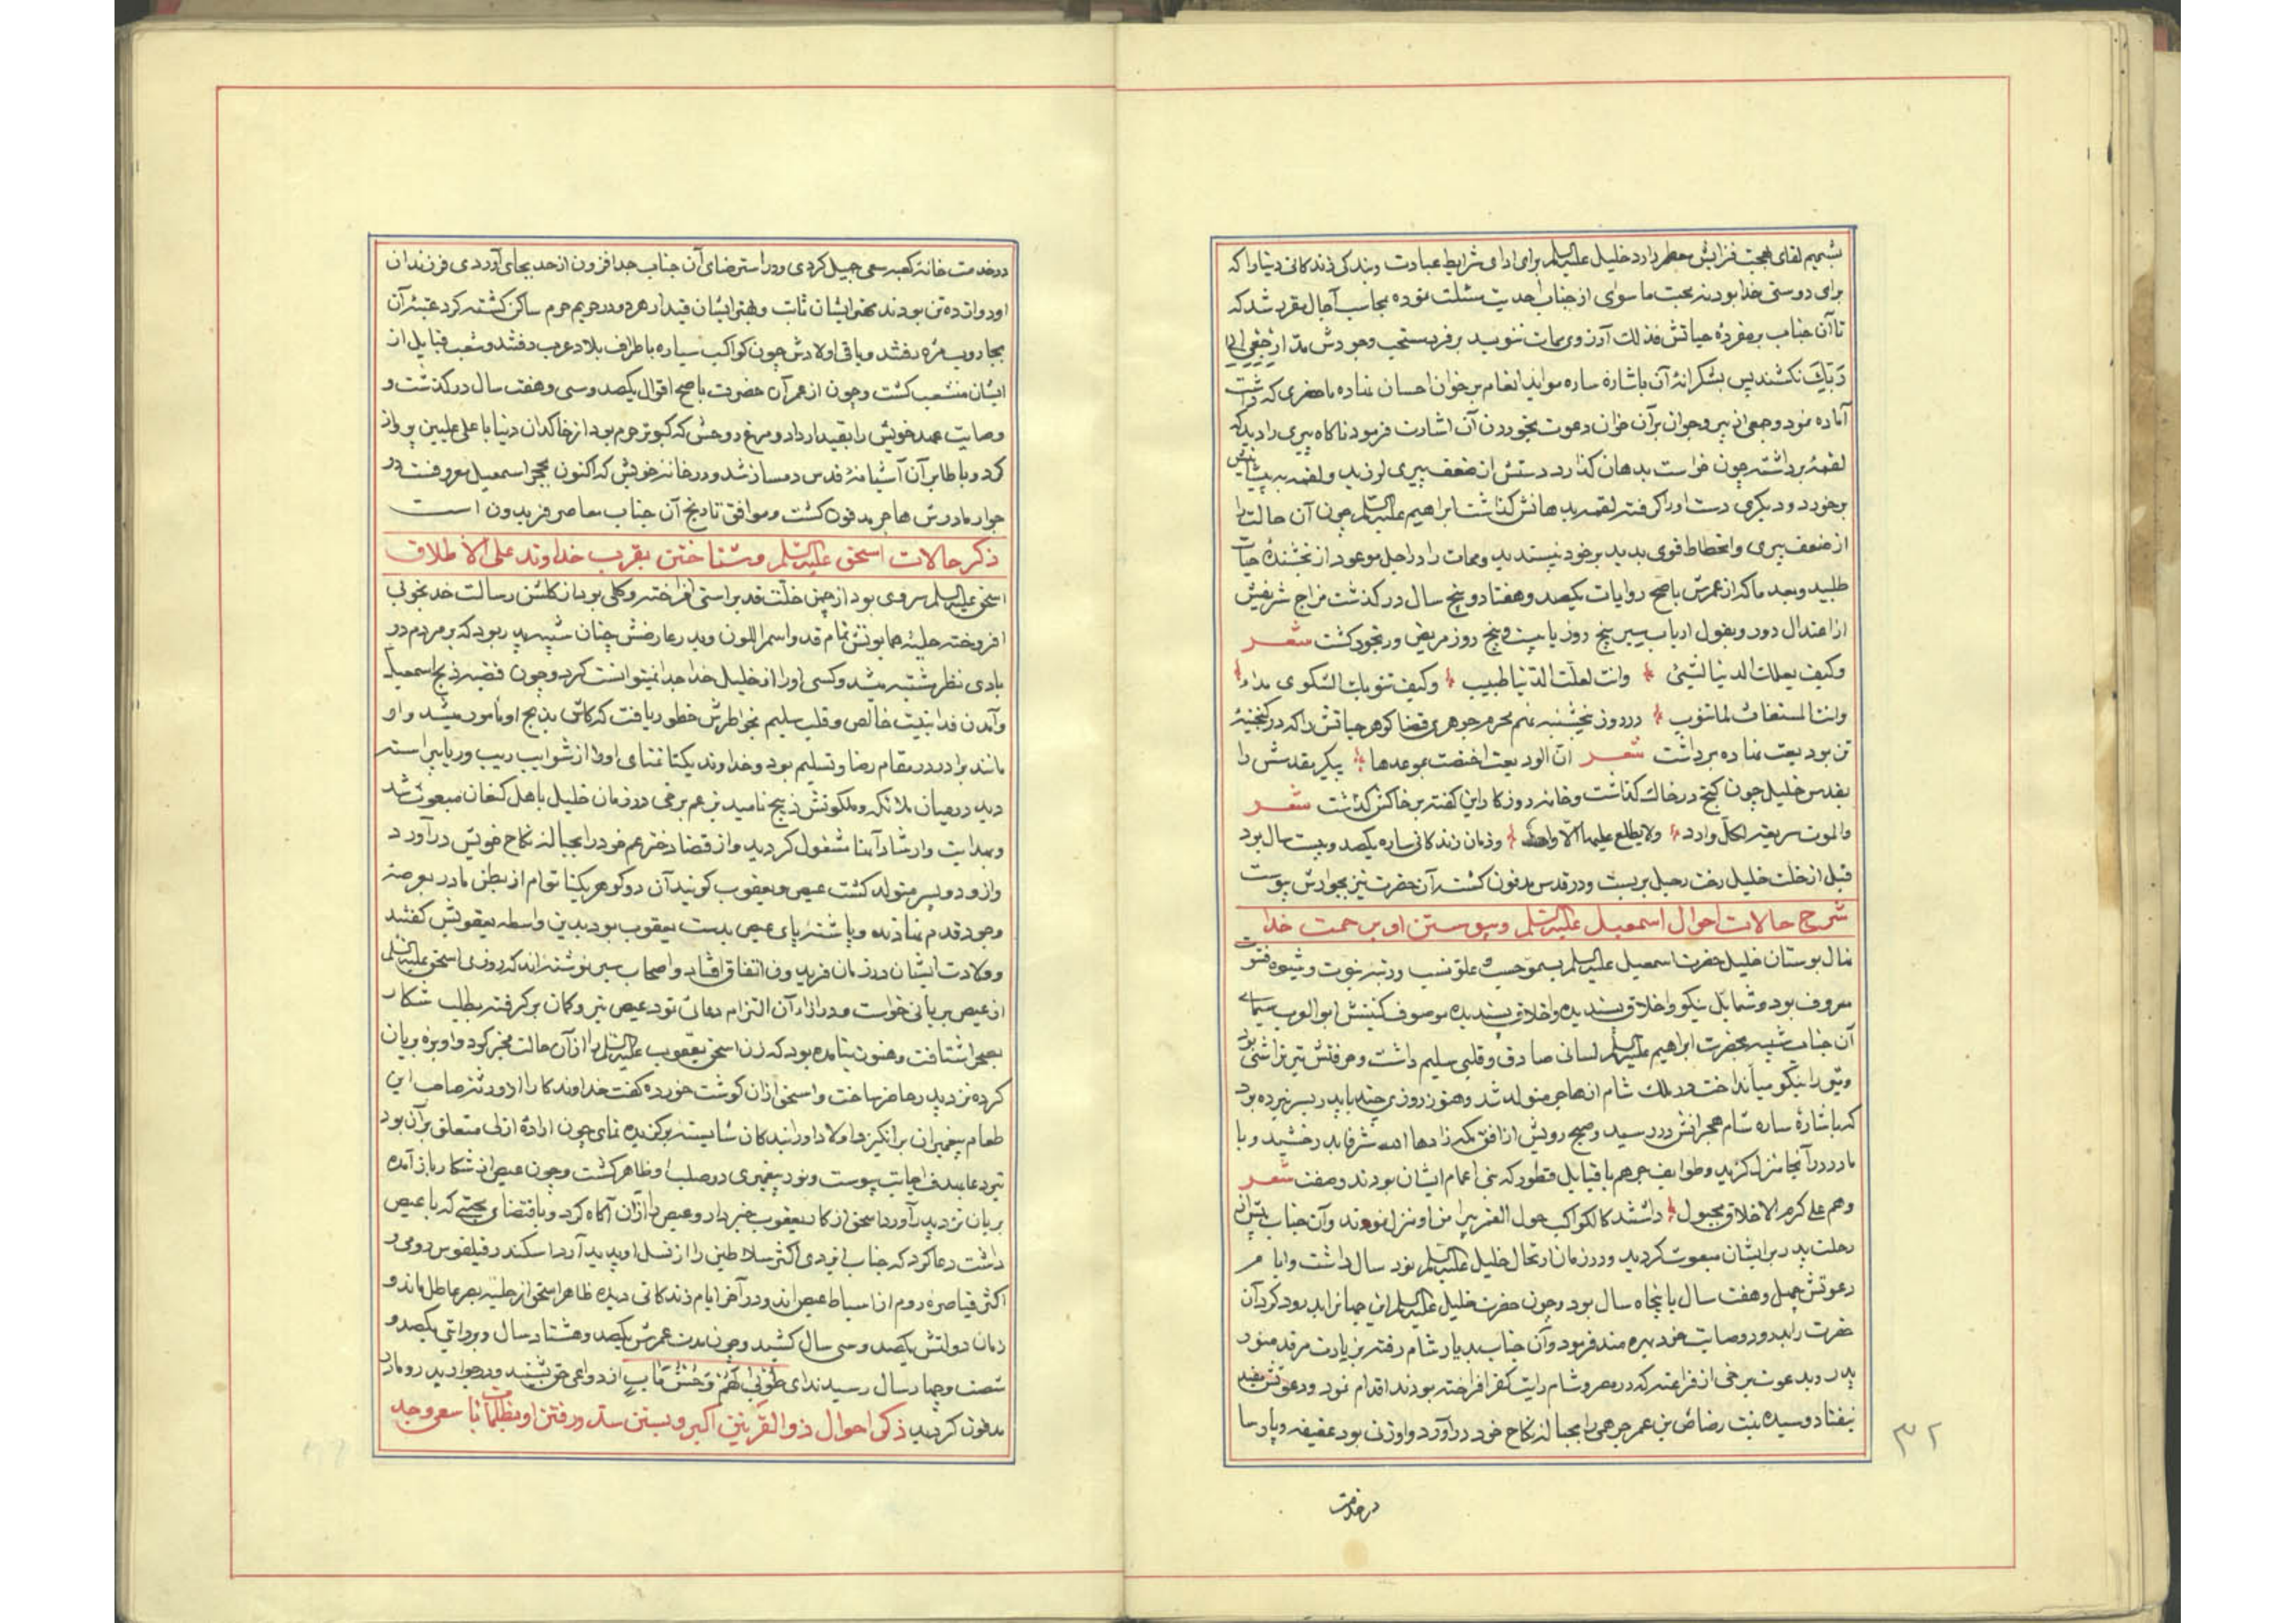 بشمیم لقای بهجت فزایش معطر دارد خلیل علیه السلم برای ادای شرایط عبادت و بندکی زندکانی دنیا را که
برای دوستی خدا بود نه بحبت ما سوای از جناب احدیت مسئلت نموده بجانب آجال مقرر شد که
تا آن جناب بر مفرده حیاتش فذلک آرزوی ممات ننویسد بر فرد مستحب وجودش مد ارجعی الی
ربک نکشند پس بشکرانهٔ آن باشارهٔ ساره مواید انعام بر خوان احسان نهاده ماحضری که داشت
آماده نمود و جمعی از پیر و جوان بر آن خوان دعوت بخوردن آن اشارت فرمود ناکاه پیری را دید که
لقمهٔ برداشته چون خواست بدهان کذارد دستش از ضعف پیری لرزید و لقمه به پیشانیش
برخورد و دیکری دست او را کرفته لقمه بدهانش کذاشت ابراهیم علیه السلم چون آن حالت را
از ضعف پیری و انحطاط قوی بدید بر خود نپسندید و ممات را در اجل موعود از بخشندهٔ حیات
طلبید و بعد ما که از عمرش باصح روایات یکصد و هفتاد و پنج سال در کذشت مزاج شریفش
از اعتدال دور و بقول ارباب سیر پنج روز یا بیست و پنج روز مریض و رنجور کشت شعر
وکیف یعلک الدنیا لشیئ وانت لعلت الدنیا طبیب وکیف تنوبک الشکوی بداء
وانت المستغاث لما تنوب در روز پنجشنبه نهم محرم جوهری قضا کوهر حیاتش را که در کنجینهٔ
تن بودیعت نهاده برداشت شعر ان الودیعت اختصت بموعدها پیکر مقدسش را
بقدس خلیل چون کنج در خاک کذاشت و خامه روزکار این کفته بر خاکش کذشت شعر
والموت سریعة لکل وارد ولا یطلع علیها الا واحد و زمان زندکانی ساره یکصد و بیست سال بود
قبل از خلت خلیل رخت رحیل بربست و در قدس مدفون کشت آن حضرت نیز بجوارش پیوست
شرح حالات احوال اسمعیل علیه السلم و پیوستن او برحمت خدا
نهال بوستان خلیل حضرت اسمعیل علیه السلم بسمو حسب و علو نسب و رتبه نبوت و شیوه فتوت
معروف بود و شمایل نیکو و اخلاق پسندیده و اخلاق پسندیده موصوف کنیتش ابو العرب سیمای
آن جناب شبیه بحضرت ابراهیم علیه السلم لسانی صادق و قلبی سلیم داشت و حرفتش تیر تراشی بود
و تیر را نیکو میانداخت در ملک شام از هاجر متولد شد و هنوز روزی چند با پدر بسر نبرده بود
که باشارهٔ ساره شام هجرانش در رسید و صبح رویش از افق مکه زادها الله شرفا بدرخشید و با
مادر در آنجا منزل کزید و طوایف جرهم با قبایل قطور که بنی اعمام ایشان بودند و صفت شعر
وهم علی کرم الاخلاق مجبول داشتند کالکواکب حول القمر پیرامن او منزل نمودند و آن جناب پس از
رحلت پدر بر ایشان مبعوث کردید و در زمان ارتحال خلیل علیه السلم نود سال داشت و ایام
دعوتش چهل و هفت سال یا پنجاه سال بود و چون حضرت خلیل علیه السلم این جهانرا بدرود کرد آن
حضرت را بدرود وصایت خود بهره مند فرمود و آن جناب بدیار شام رفته بزیارت مرقد منور
پدر و بدعوت برخی از فراعنه که در مصر و شام رایت کفر افراخته بودند اقدام نمود و دعوتش مفید
نیفتاد و سیده بنت رضاض بن عمر جرهمی را بحباله نکاح خود در آورد و او زنی بود عفیفه و پارسا
در خدمت
۳۲
در خدمت خانهٔ کعبه سعی جمیل کردی و در استرضای آن جناب جد افزون از حد بجای آوردی فرزندان
او دوازده تن بودند مهتر ایشان ثابت و بهتر ایشان قیدار هر دو در حریم حرم ساکن کشته کرد عتبهٔ آن
بجاروب مژه رفتند و باقی اولادش چون کواکب سیاره باطراف بلاد عرب رفتند و شعب قبایل از
ایشان منشعب کشت و چون از عمر آن حضرت باصح اقوال یکصد و سی و هفت سال در کذشت و
وصایت عهد خویش را بقیدار داد و مرغ روحش که کبوتر حرم بود از خاکدان دنیا باعلی علیین پرواز
کرد و با طایر آن آشیانهٔ قدس دمساز شد و در خانه خویش که اکنون بحجر اسمعیل معروفست در
جوار مادرش هاجر مدفون کشت و موافق تاریخ آن جناب معاصر فریدون است
ذکر حالات اسحق علیه السلم و شتافتن بقرب خداوند علی الاطلاق
اسحق علیه السلم سروی بود از چمن خلت قد براستی افراخته و کلی بود از کلشن رسالت خد بخوبی
افروخته حلیهٔ همایونش تمام قد و اسمر اللون و پدر عارضش چنان شبیه پدر بود که بر مردم در
بادی نظر مشتبه میشد و کسی او را از خلیل خدا جدا نمیتوانست کرد و چون قضیه ذبح اسمعیل
و آمدن فدا بنیت خالص و قلب سلیم بخواطرش خطور یافت که کاش بذبح او مامور میشد و او
مانند برادر در مقام رضا و تسلیم بود و خداوند یکتا تمنای او را از شوایب ریب و ریا پیراسته
دید در میان ملائکه و ملکوتش ذبیح نامید بزعم برخی در زمان خلیل باهل کنعان مبعوث شد
و بهدایت و ارشاد آنها مشغول کردید و از قضا دختر عم خود را بحباله نکاح خویش در آورد
و از او دو پسر متولد کشت عیص و یعقوب کویند آن دو کوهر یکتا توام از بطن مادر بعرصهٔ
وجود قدم نهادند و پاشنهٔ پای عیص بدست یعقوب بود بدین واسطه یعقوبش کفتند
و ولادت ایشان در زمان فریدون اتفاق افتاد و اصحاب سیر نوشته اند که روزی اسحق علیه السلم
از عیص بریانی خواست و در ازاء آن التزام دعائی نمود عیص تیر و کمان بر کرفته بطلب شکار
بصحرا شتافت و هنوز نیامده بود که زن اسحق یعقوب علیه السلم را از آن حالت مخبر کرد و او بزه بریان
کرده نزد پدر حاضر ساخت و اسحق از آن کوشت خورده کفت خداوند کارا از دو رشته صاحب این
طعام پیغمبران برانکیز و اولاد او را بندکان شایسته برکزیده نمای چون ارادهٔ ازلی متعلق بر آن بود
تیر دعا بهدف اجابت پیوست و نور پیغمبری در صلب او ظاهر کشت و چون عیص از شکار باز آمده
بریان نزد پدر آورد اسحق از کار یعقوب خبر دار و عیص را از آن آکاه کرد و باقتضای محبتی که با عیص
داشت دعا کرد که جناب ایزدی اکثر سلاطین را از نسل او پدید آرد اسکندر فیلقوس رومی و
اکثر قیاصره روم از اسباط عیص اند و در آخر ایام زندکانی دیده ظاهر اسحق از حلیه بصر عاطل ماند و
زمان دولتش یکصد و سی سال کشید و چون مدت عمرش یکصد و هشتاد سال و بروایتی یکصد و
شصت و چهار سال رسید ندای طوبی لهم و حسن مآب از دواعی حق بشنید و در جوار پدر و مادر
مدفون کردید ذکر احوال ذو القرنین اکبر و بستن سد و رفتن او بظلمات با سعی و جد